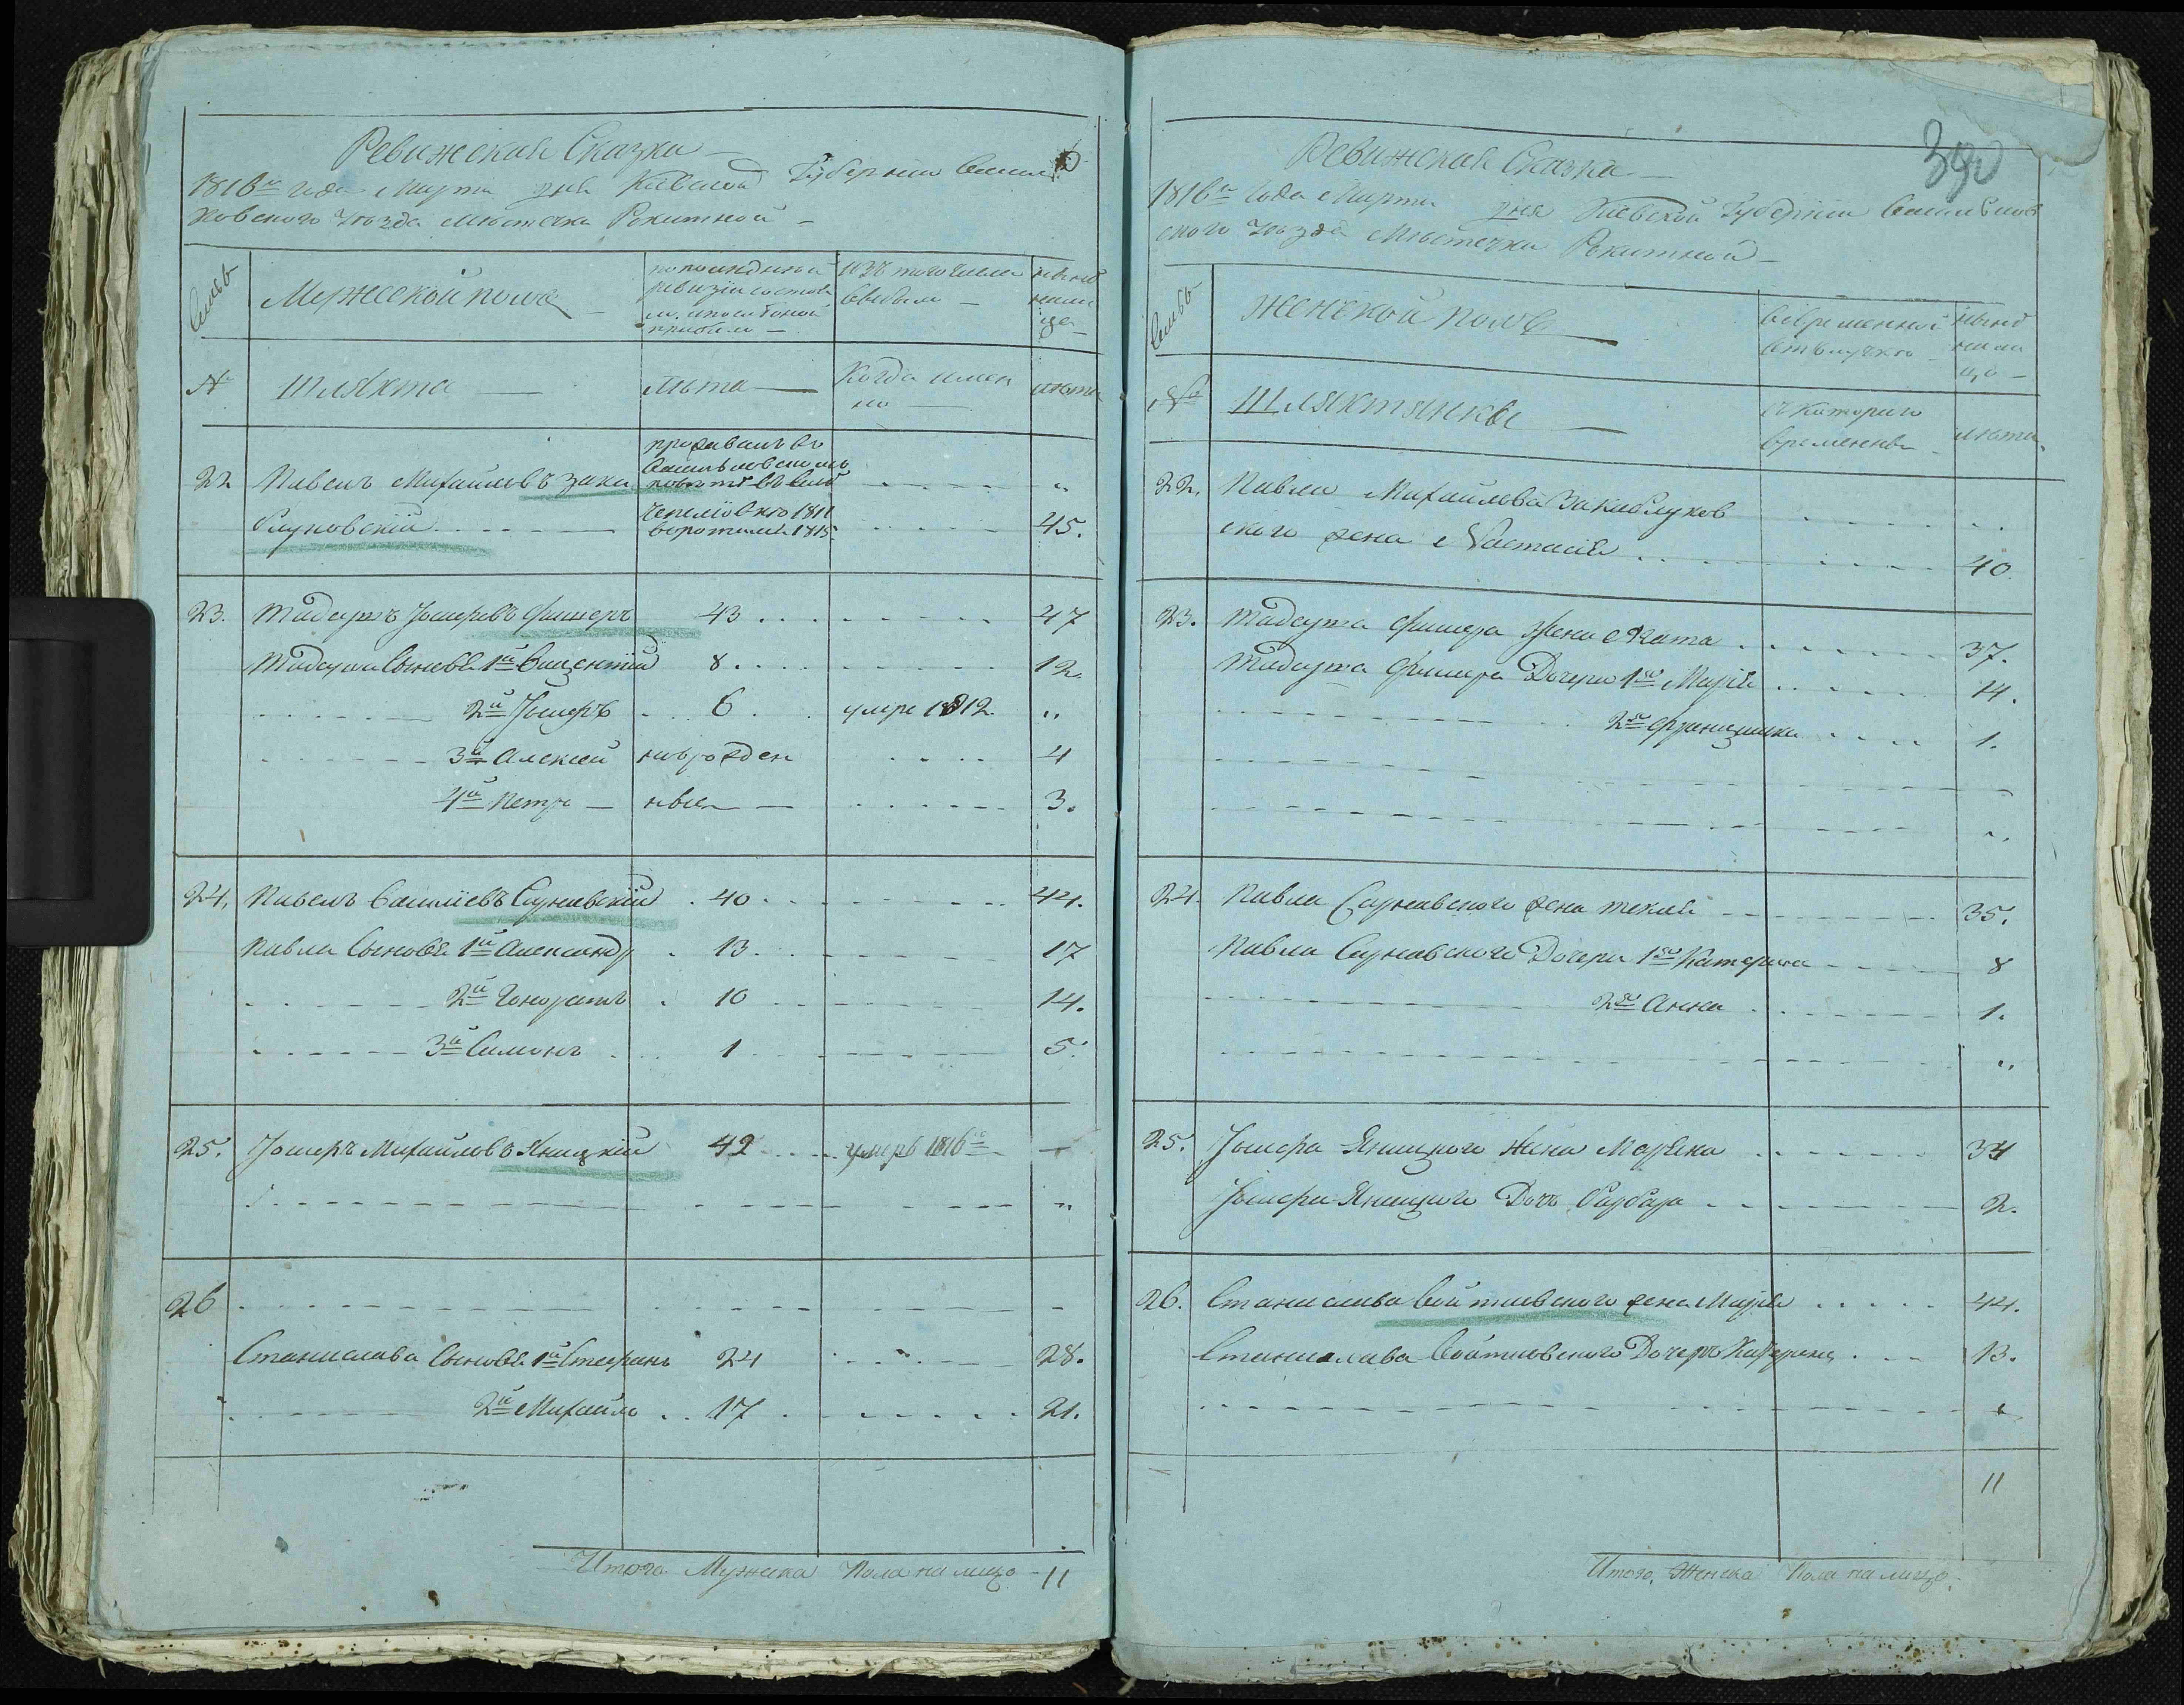 Ревижская Сказка
1816го года Марта дня Киевской Губернии Василь
ковского уезда Местечка Рокитной
Семьи
Мужеской полъ
по последней
ревизіи состоя
ло и после оной
прибыло
изъ того числа
выбыло
ныне
нали
це
№
шляхта
лета
Когда имен
но
лета
22 Павелъ Михайловъ Зака
проживалъ въ
Васильковскомъ
повете въ селе
блуковскій
1811
воротился 1815.
45.
23. Тадеушъ Іосифовъ Фишеръ 43 47
Тадеуша Сыновья 1й Викентій 8 12
2й Іосифъ 6 умре 1812
3й Алексей новорожден 4
4й Петръ 3.
24. Павелъ Василіевъ Сарнавскій 40 44.
Павла Сыновья 1й Александр 13 17
2й Гоноратъ 10 14.
3й Симонъ 1 5.
25. Іосифъ Михайловъ Яницкій 42 умеръ 1816го
26
Станислава Сыновья 1й Стефанъ 24 28.
2й Михайло 17 21.
Итого Мужска Пола на лицо 11
390
Ревижская Сказка
1816го Года Марта дня Киевской Губерніи Васильков
ского уезда Местечка Рокитной
Семьи
женской полъ
во временной
отлучке
ныне
нали
цо
№
Шляхтянки
съ которого
времени
лета
22. Павла Михайлова Закаблуков
ского жена Настасія 40.
23. Тадеуша Фишера Жена Агата 37.
Тадеуша Фишера Дочери 1я Марія 14.
2я Францишка 1.
24. Павла Сарнавского жена Текля 35.
Павла Сарнавского Дочери 1я Катерина 8
2я Анна 1.
25. Іосифа Яницкого Жена Маріяна 34
Іосифа Яницкого Дочь Барбара 2.
26. Станислава Войтковского жена Марія 44.
Станислава Войтковского Дочерь Катерина 13.
11
Итого Женска Пола на лицо